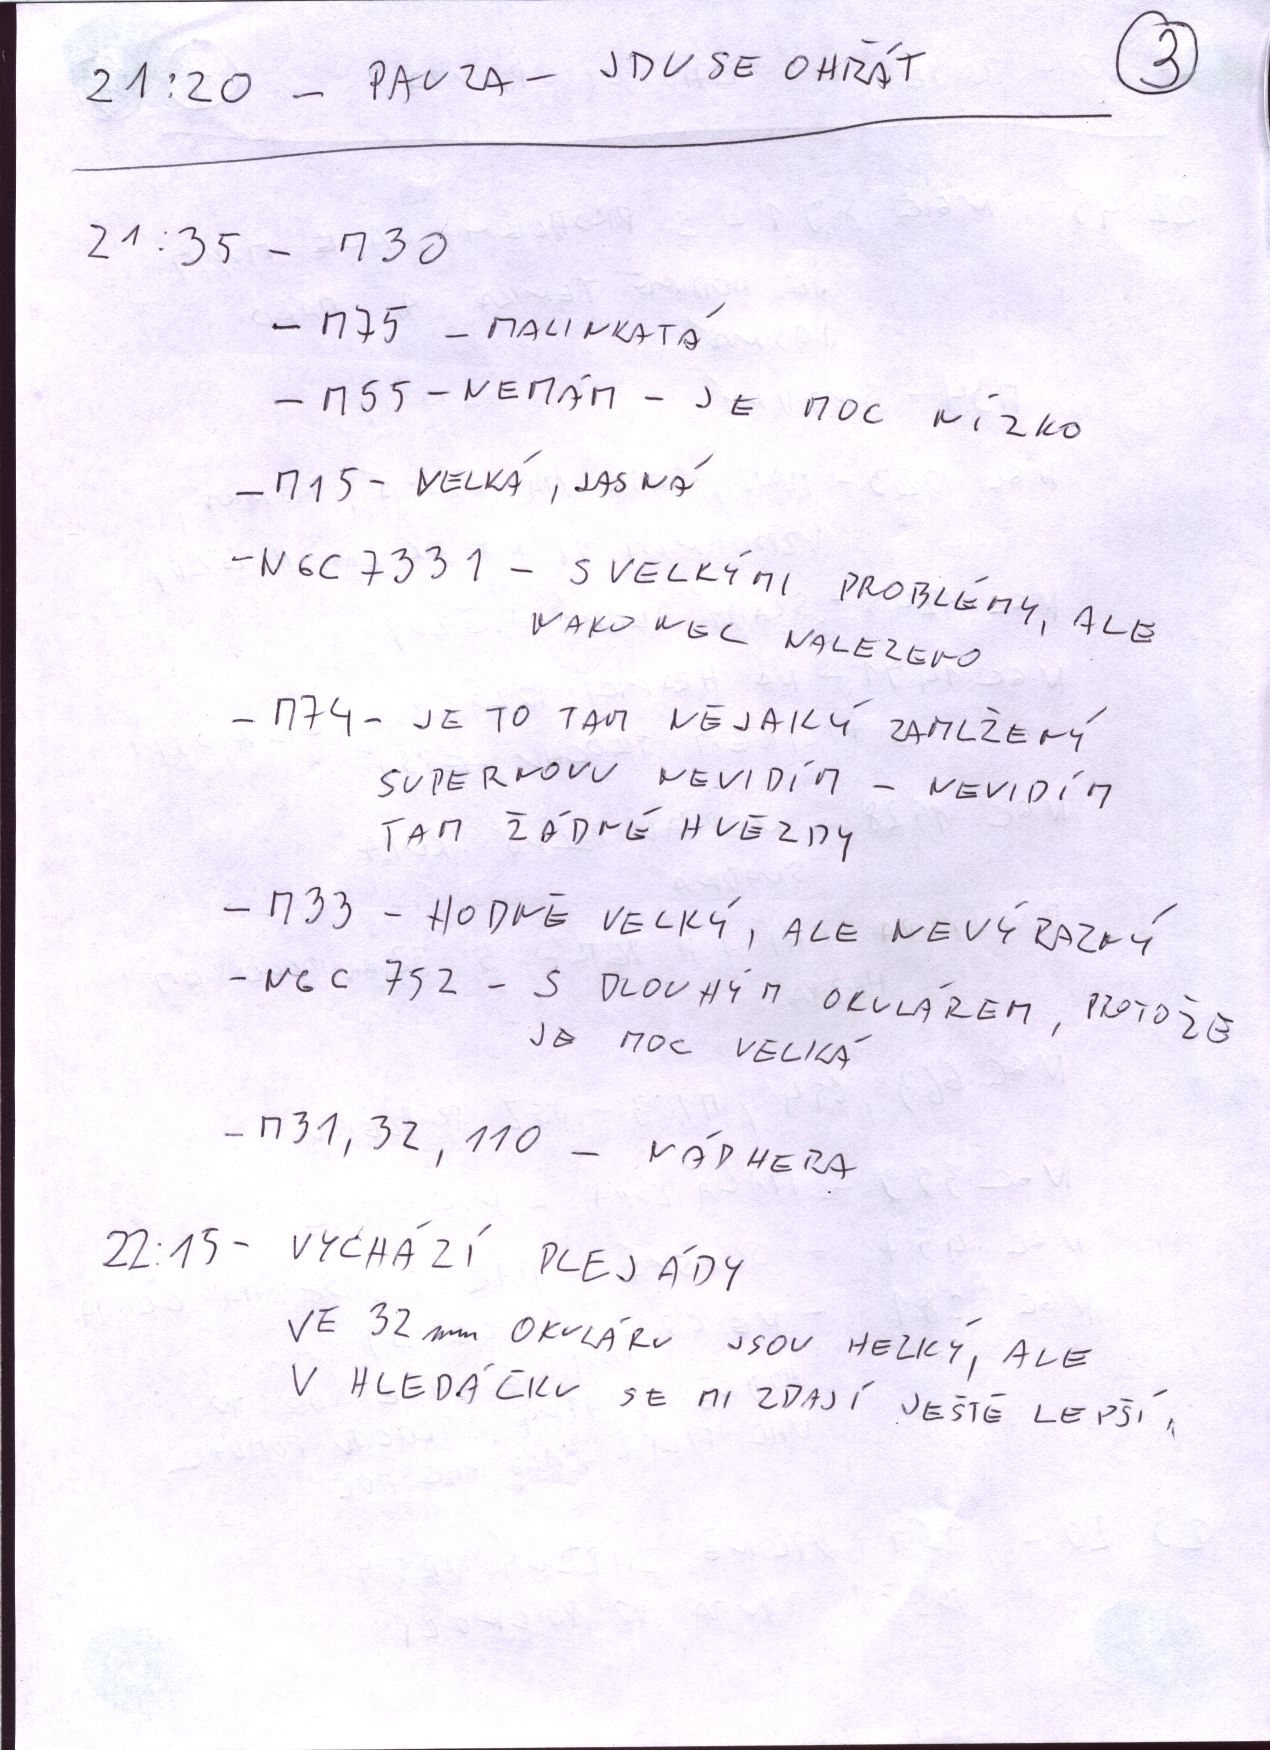 21:20 – PAUZA – JDU SE OHŘÁT
3
21:35 – M30
– M75 – MALINKATÁ
– M55 – NEMÁM – JE MOC NÍZKO
– M15 – VELKÁ, JASNÁ
– NGC 7331 – S VELKÝMI PROBLÉMY, ALE
NAKONEC NALEZENO
– M74 – JE TO TAM NĚJAKÝ ZAMLŽENÝ
SUPERNOVU NEVIDÍM – NEVIDÍM
TAM ŽÁDNÉ HVĚZDY
– M33 – HODNĚ VELKÝ, ALE NEVÝRAZNÝ
– NGC 752 – S DLOUHÝM OKULÁREM, PROTOŽE
JE MOC VELKÁ
– M31, 32, 110 – NÁDHERA
22:15 – VYCHÁZÍ PLEJÁDY
VE 32mm OKULÁRU JSOU HEZKÝ, ALE
V HLEDÁČKU SE MI ZDAJÍ JEŠTĚ LEPŠÍ.